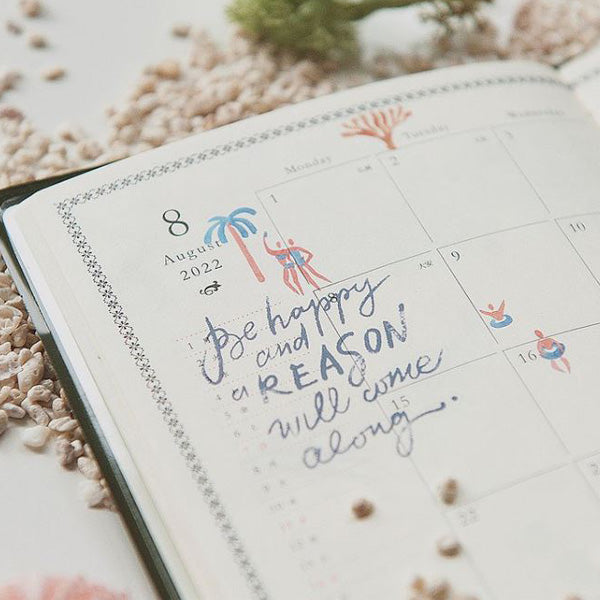 Monday
Tuesday
Wednesday
8
August
2022
1
2
3
8
9
10
15
16
22
Be happy
and
a REASON
will come
along.